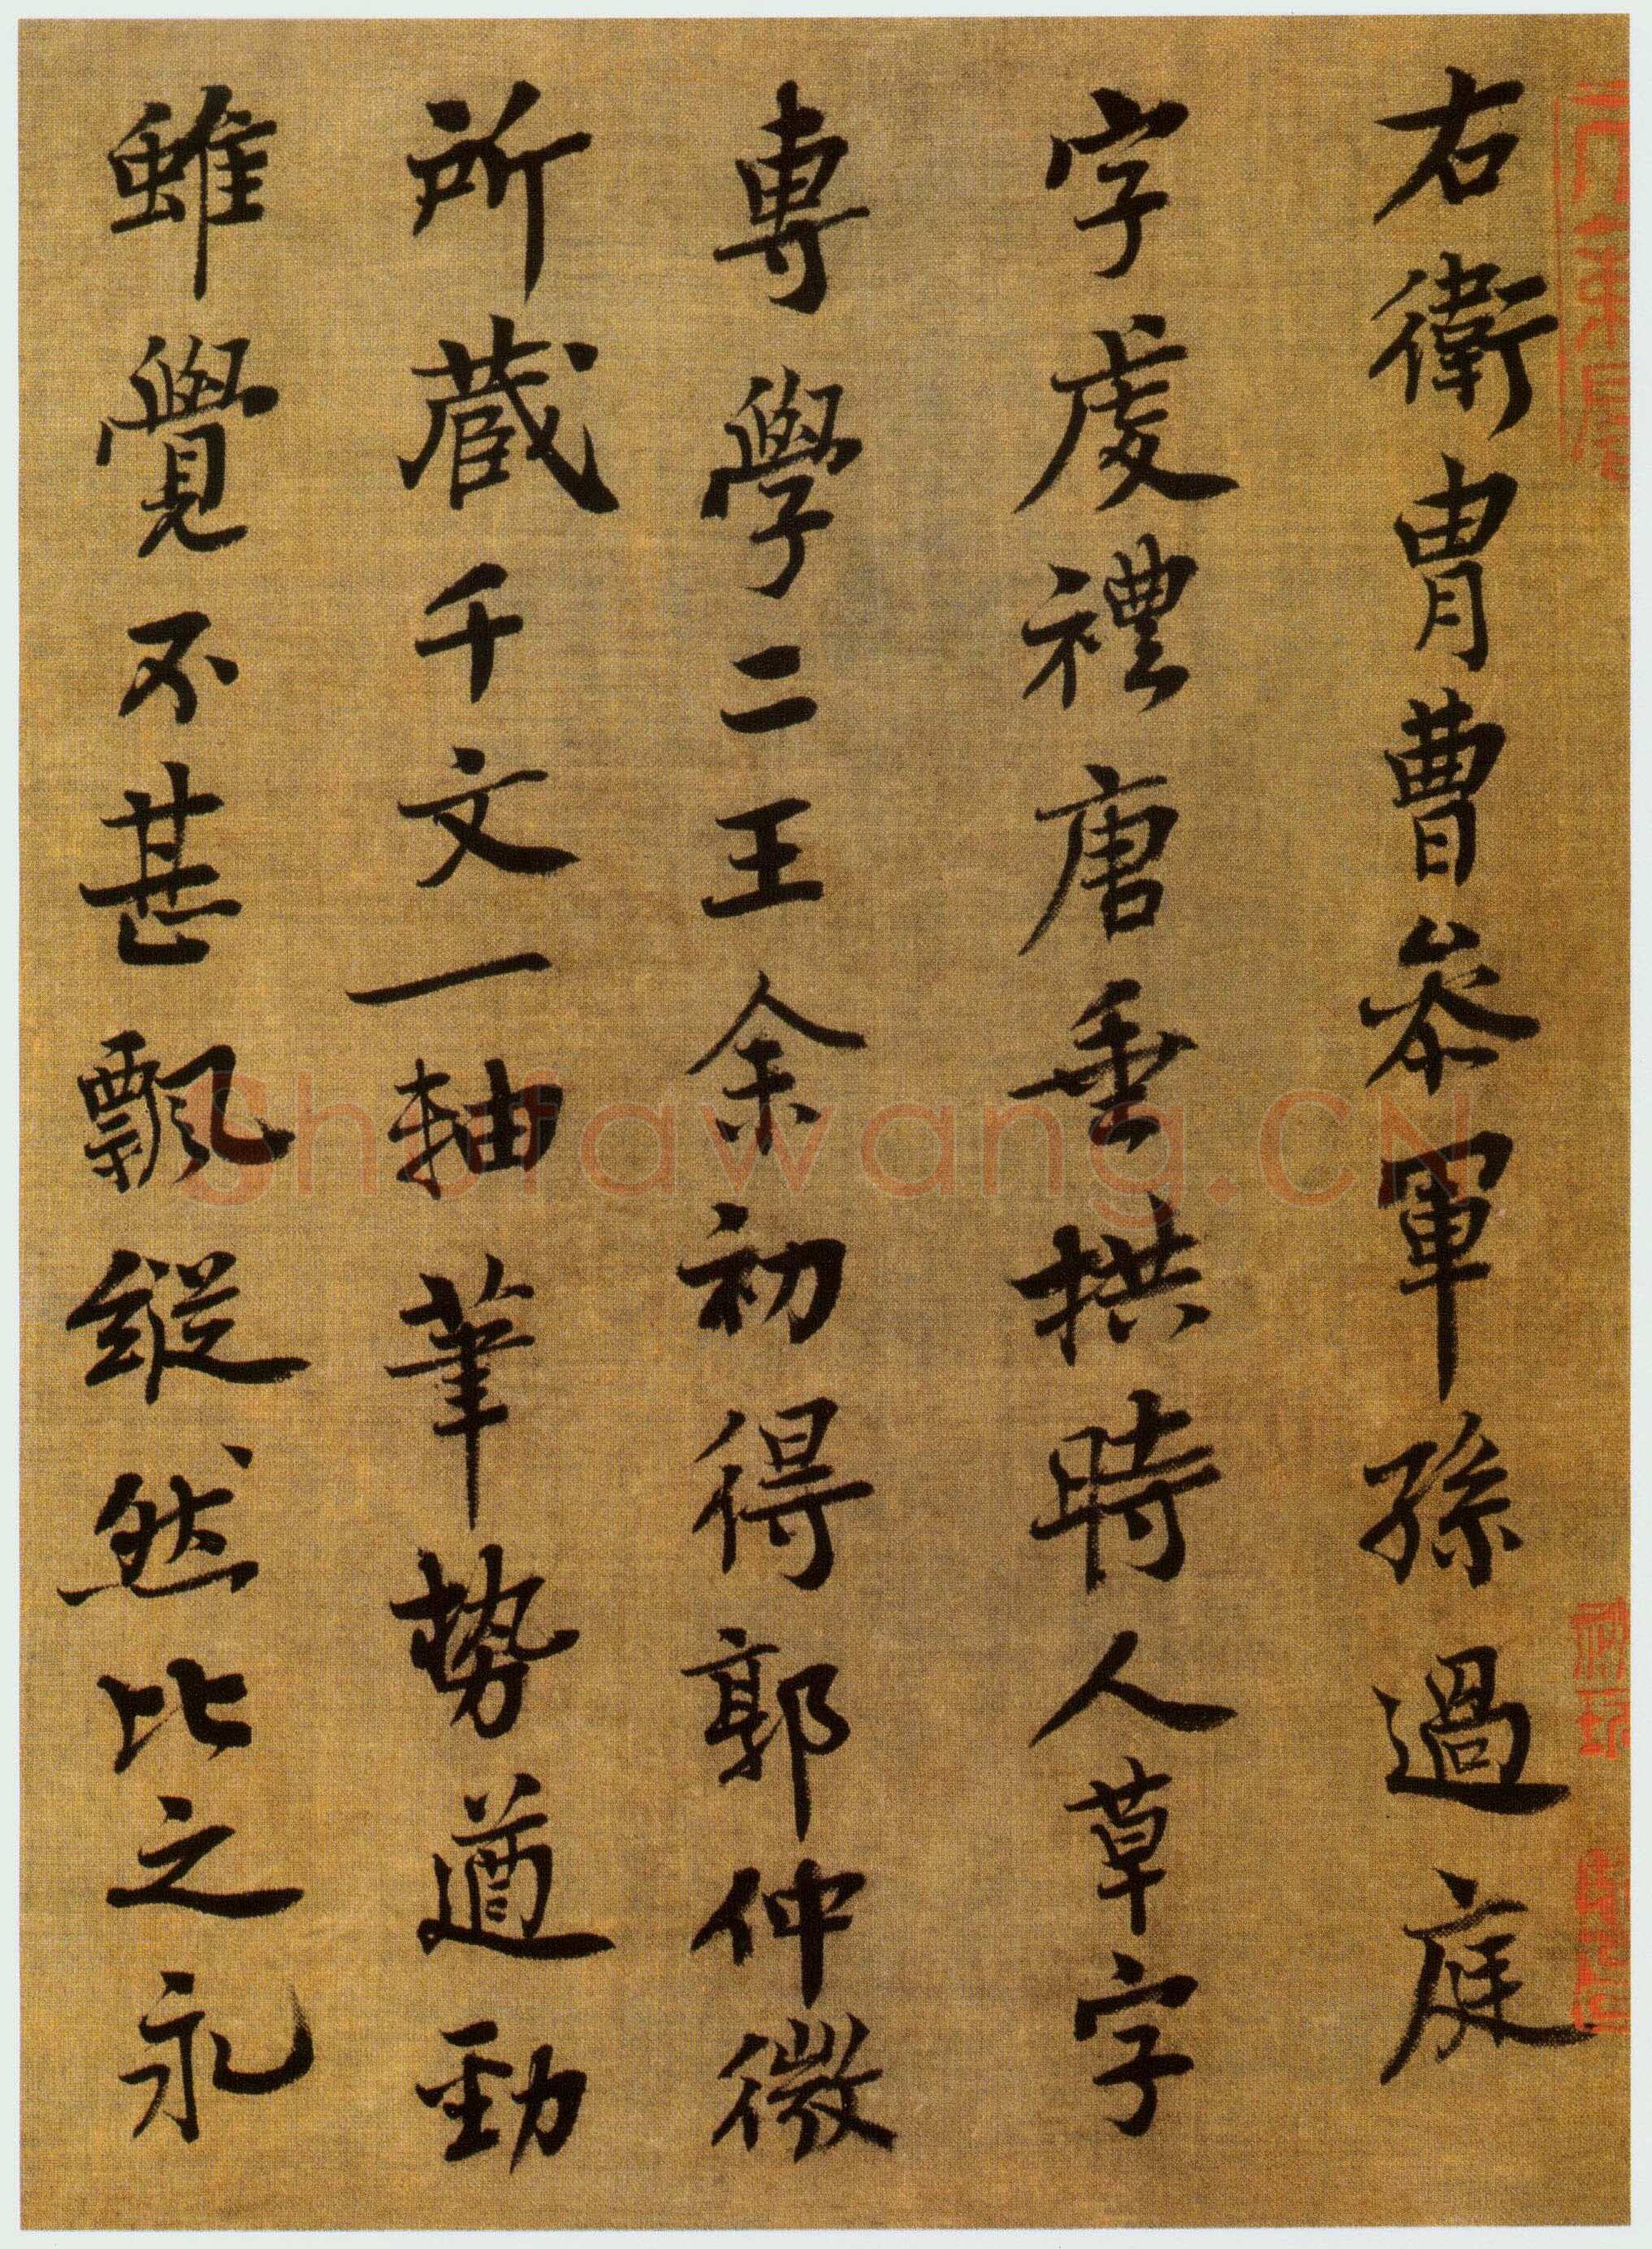 右衛冑曹參軍孫過庭
字虔禮唐垂拱時人草字
專學二王余初得郭仲微
所蔵千文一軸筆勢遒勁
雖覺不甚飄縱然比之永
Shufawang.CN